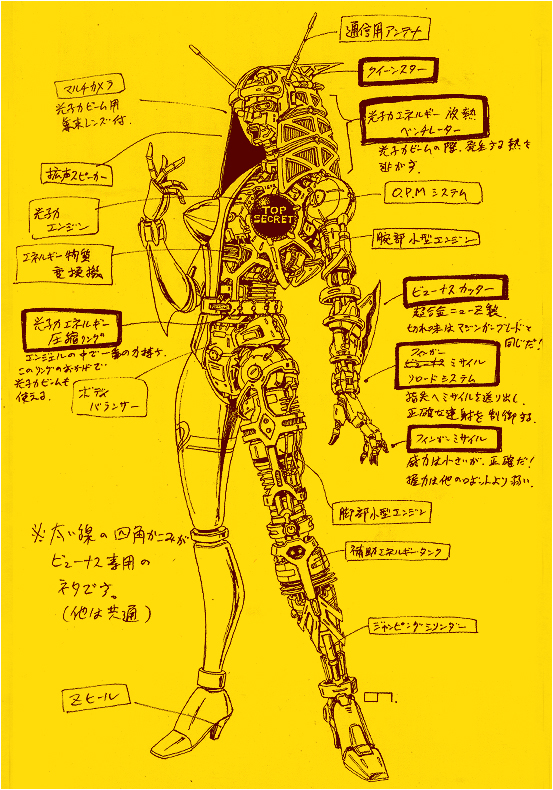 通信用アンテナ
クイーンスター
マルチカメラ
光子力ビーム用
幕末レンズ付.
光子力エネルギー放熱
ベンチレーター
光子力ビームの際、発生する熱を
逃がす.
拡声スピーカー
O.P.Mシステム
TOP
SECRET
光子力
エンジン
腕部小型エンジン
エネルギー物質
変換機
ビューナスカッター
超合金ニューZ製
切れ味はマジンガーブレードと
同じだ!
光子力エネルギー
圧縮リング
エンジェルの中で一番の力持ち.
このリングのおかげで
光子力ビームも
使える.
フィンガー
ミサイル
リロードシステム
指先へミサイルを送り出し、
正確な連射を制御する.
ボディ
バランサー
フィンガーミサイル
威力は小さいが、正確だ!
握力は他のロボットより弱い.
脚部小型エンジン
※太い線の四角がこみが
ビューナス専用の
ネタです。
(他は共通)
補助エネルギータンク
ジャンピングシリンダー
Zヒール